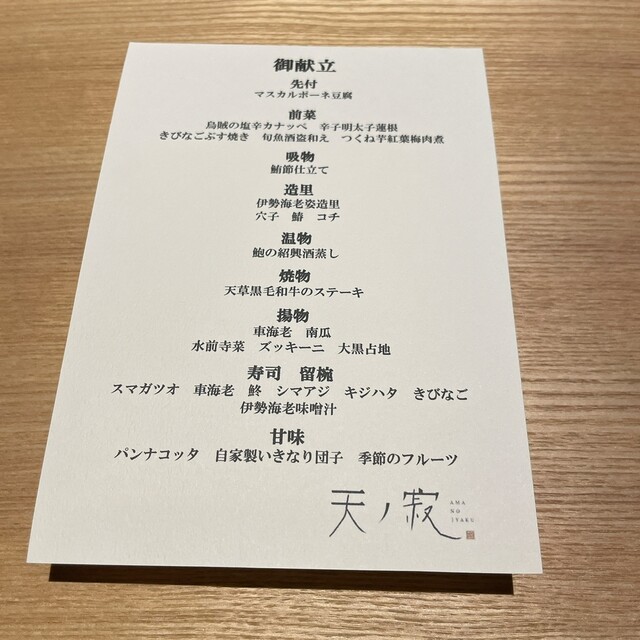 御献立
先付
マスカルポーネ豆腐
前菜
烏賊の塩辛カナッペ　辛子明太子蓮根
きびなごぶす焼き　旬魚酒盗和え　つくね芋紅葉梅肉煮
吸物
鮪節仕立て
造里
伊勢海老姿造里
穴子　鰆　コチ
温物
鮑の紹興酒蒸し
焼物
天草黒毛和牛のステーキ
揚物
車海老　南瓜
水前寺菜　ズッキーニ　大黒占地
寿司　留椀
スマガツオ　車海老　鮗　シマアジ　キジハタ　きびなご
伊勢海老味噌汁
甘味
パンナコッタ　自家製いきなり団子　季節のフルーツ
天ノ寂
AMA
NO
JYAKU